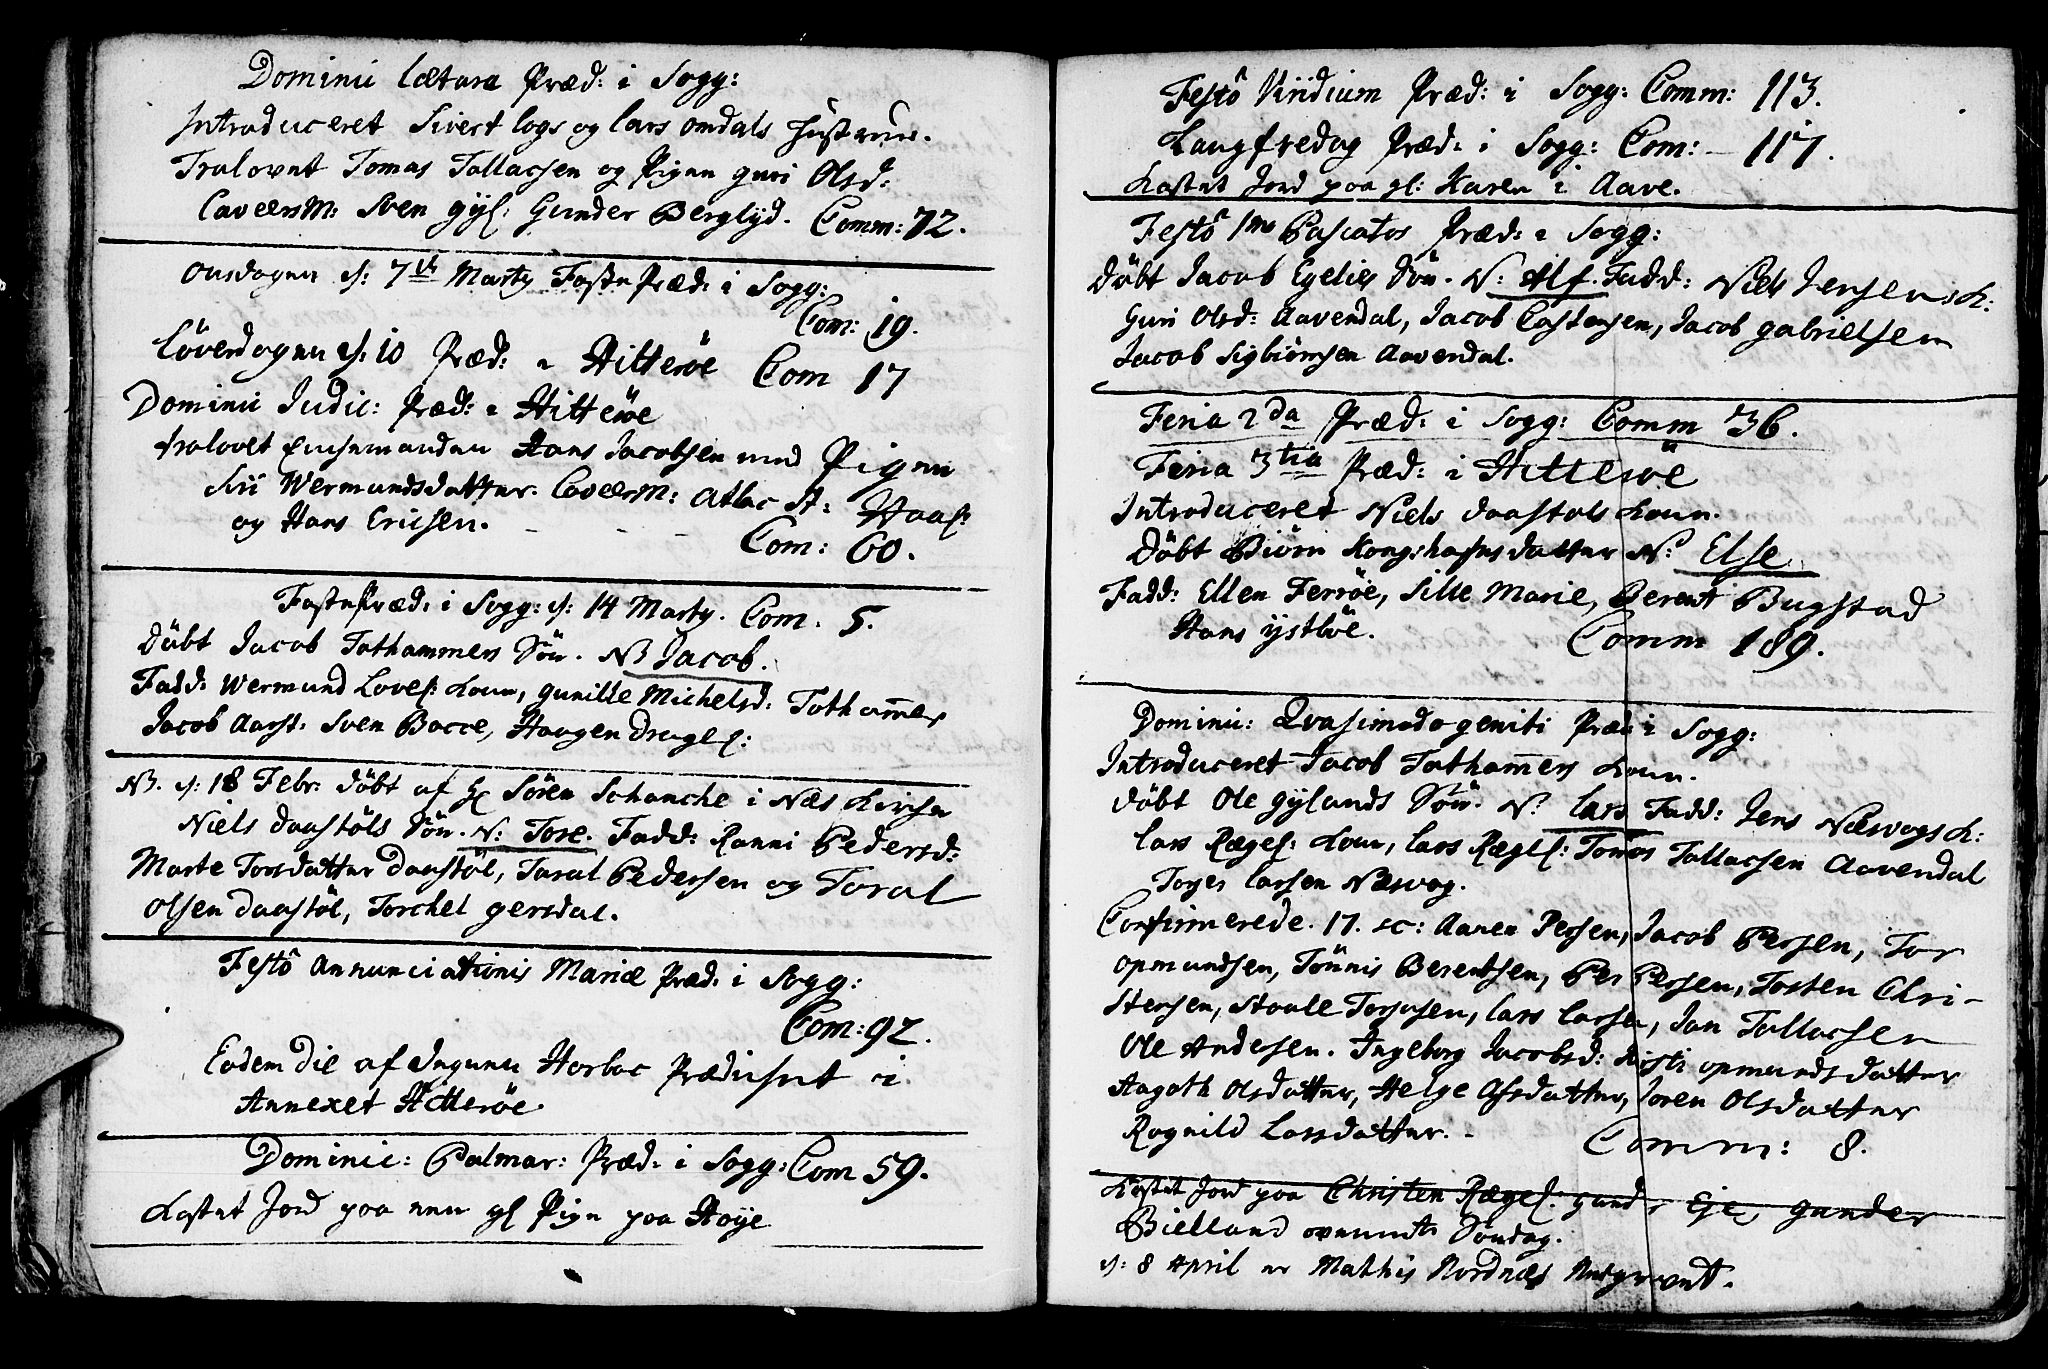 Dominii Lætare Præd: i Sogg:
Introduceret Sivert Logs og Lars Omdals Hustruer.
Trolovet Tomas Tallacsen og Pigen Guri Olsd:
Caveersm: Sven Gyl: Gunder Berglyd. Comm: 72.
Onsdagen d: 7de Marty Faste Præd: i Sogg:
Com: 19.
Löverdagen d: 10 Præd: i Hitteröe Com 17
Dominii Judic: Præd: i Hitteröe
trolovet Enchemanden Hans Jacobsen med Pigen
Siri Wermundsdatter. Caveersm: Atlac St: Haas:
og Hans Ericsen. Com: 60.
FastePræd: i Sogg: d: 14 Marty. Com. 5.
Döbt Jacob Tothammers Sön. N Jacob.
Fadd: Wermund Loves: Kone, Gunille Michelsd: Tothamer
Jacob Aarst: Sven Bocce, Haagen Drages:
NB. d: 18 Febr: döbt af Hr Sören Schanche i Næs Kirche
Niels Daastöls Sön. N: Tore. Fadd: Ranni Pedersd:
Marte Torsdatter Daastöl, Taral Pedersen og Toral
Olsen Daastöl, Torchel Gersdal.
Festo Annunciationis Mariæ Præd: i Sogg:
Com: 92.
Eodem Die af Ingenu Horboe Prædichet i
Annexet Hitteröe
Dominic: Palmar: Præd: i Sogg: Com 59.
Kastet Jord paa een gl Pige paa Høye
Festo Viridium Præd: i Sogg: Comm: 113.
Langfredag Præd: i Sogg: Com: 117.
Kastet Jord paa gl: Karen i Aave.
Festo 1me Pascatos Præd: i Sogg:
Döbt Jacob Egelies Sön. N: Alf. Fadd: Niels Jensens K:
Guri Olsd: Aavendal, Jacob Castensen, Jacob Gabrielsen
Jacob Sigbiörnsen Aavendal.
Feria 2da Præd: i Sogg: Comm 36.
Feria 3tia Præd: i Hitteröe
Introduceret Niels Daastöls Kone.
Döbt Biörn Kongshafns datter N: Else
Fadd: Ellen Ferröe, Sille Marie, Berent Bugstad
Hans Ystböe. Comm 189.
Dominii: Qvasimodo geniti Præd: i Sogg:
Introduceret Jacob Tothamers Kone.
Döbt Ole Gylands Sön. N: Lars Fadd: Jens Næsvogs K:
Lars Ræges: Kone, Lars Rægs: Tomas Tallacsen Aavendal
Toger Larsen Næsvog.
Confirmerede. 17. sc: Aanen Persen, Jacob Persen, Tor
Opmundsen, Tönnis Berentsen, Per Persen, Tosten Chri-
stensen, Staale Torgusen, Lars Larsen, Jan Tallacsen
Ole Andersen. Ingeborg Jacobsd: Kirsti Opmundsdatter
Aagoth Olsdatter, Helge Asdatter, Joren Olsdatter
Rognild Larsdatter. Comm: 8.
Kastet Jord paa Christen Ræges: Gunder
Bielland ovennte Söndag.
d: 8 April er Mathis Nordnæs Nedgravet.